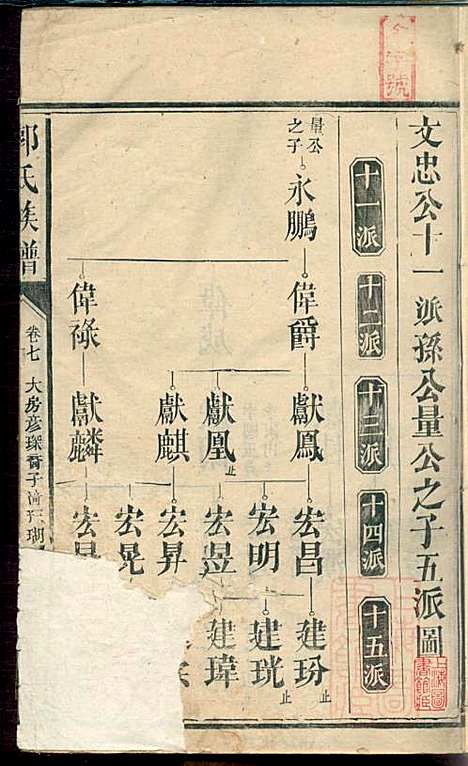 文忠公十一派孫公量公之子五派圖
十一派
十二派
十三派
十四派
十五派
量公之子
永鵬
偉爵
偉祿
獻鳳
獻凰
止
獻麒
獻麟
宏昌
宏明
宏昱
宏昇
宏晃
宏
建玢
止
建珖
止
建瑋
氏族譜
卷七
大房彥琛裔子
號